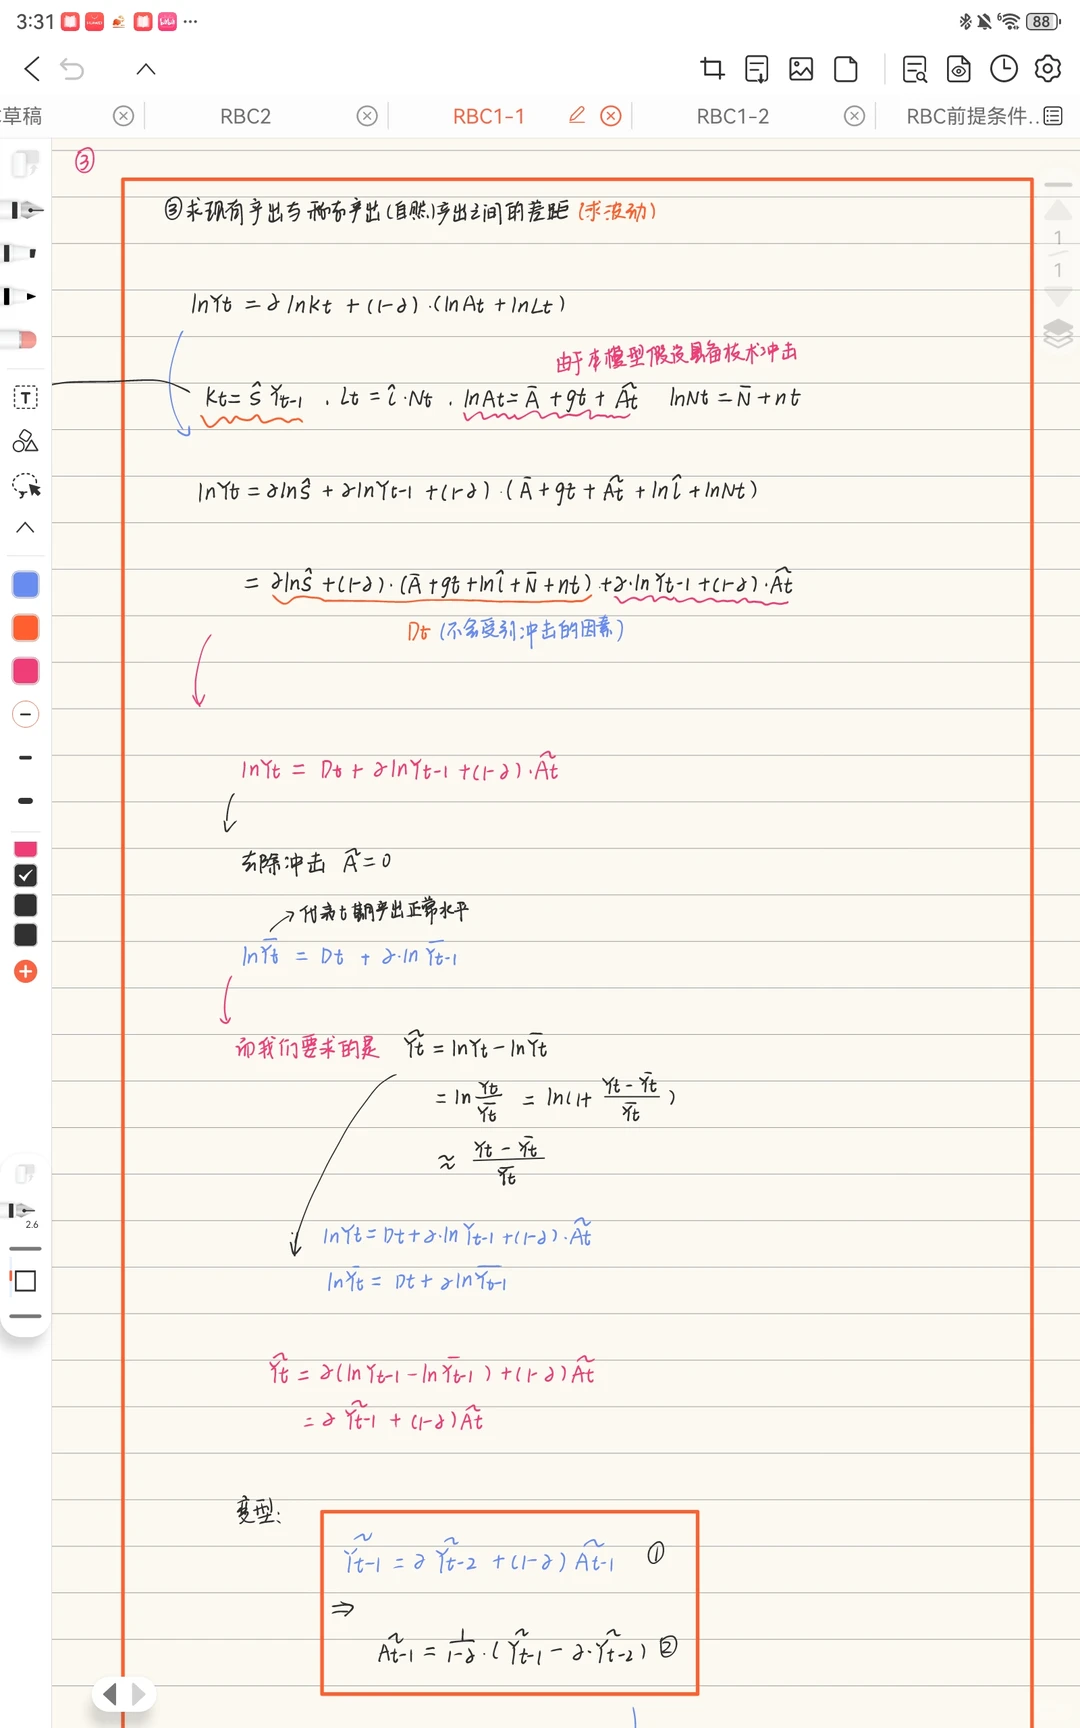 3:31 88
草稿 RBC2 RBC1-1 RBC1-2 RBC前提条件..
③
③求现有产出与潜在产出(自然)产出之间的差距 (求波动)
lnYt = αlnKt + (1-α)·(lnAt + lnLt)
由于本模型假设具备技术冲击
Kt = ŝYt-1 , Lt = l̂·Nt , lnAt = Ā + gt + Ãt lnNt = N̄ + nt
lnYt = αlnŝ + αlnYt-1 + (1-α)·(Ā + gt + Ãt + lnl̂ + lnNt)
= αlnŝ + (1-α)·(Ā + gt + lnl̂ + N̄ + nt) + α·lnYt-1 + (1-α)·Ãt
Dt (不会受到冲击的因素)
lnYt = Dt + αlnYt-1 + (1-α)·Ãt
去除冲击 Ã = 0
代表t期产出正常水平
lnȲt = Dt + α·lnȲt-1
而我们要求的是 Ỹt = lnYt - lnȲt
= ln Yt/Ȳt = ln(1 + (Yt - Ȳt)/Ȳt)
≈ (Yt - Ȳt)/Ȳt
lnYt = Dt + α·lnYt-1 + (1-α)·Ãt
lnȲt = Dt + αlnȲt-1
Ỹt = α(lnYt-1 - lnȲt-1) + (1-α)Ãt
= αỸt-1 + (1-α)Ãt
变型:
Ỹt-1 = αỸt-2 + (1-α)Ãt-1 ①
⇒
Ãt-1 = 1/(1-α)·(Ỹt-1 - α·Ỹt-2) ②
1
1
2.6